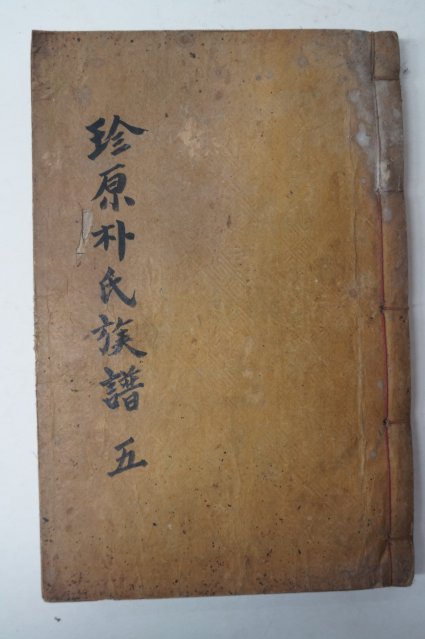 珍原朴氏族譜 五